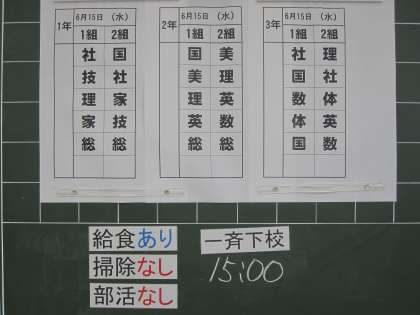 1年 6月15日 (水)
1組 2組
社 国
技 社
理 家
家 技
総 総
2年 6月15日 (水)
1組 2組
国 美
美 理
理 英
英 数
総 総
3年 6月15日 (水)
1組 2組
社 理
国 社
数 体
体 英
国 数
給食あり
掃除なし
部活なし
一斉下校
15:00